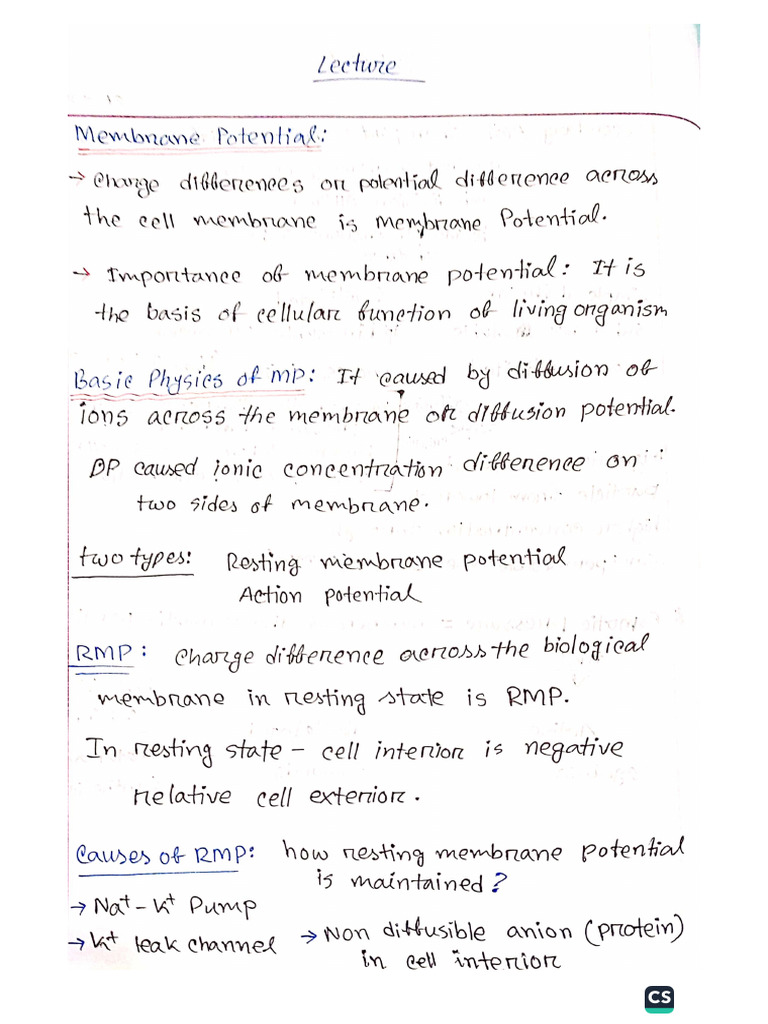 Lecture
Membrane Potential:
→ Charge differences or potential difference across
the cell membrane is membrane Potential.
→ Importance of membrane potential: It is
the basis of cellular function of living organism
Basic Physics of MP: It caused by diffusion of
ions across the membrane or diffusion potential.
DP caused ionic concentration difference on
two sides of membrane.
two types: Resting membrane potential
Action potential
RMP: Charge difference across the biological
membrane in resting state is RMP.
In resting state - cell interior is negative
relative cell exterior.
Causes of RMP: how resting membrane potential
is maintained?
→ Na+ - K+ Pump
→ K+ leak channel → Non diffusible anion (protein)
in cell interior
CS